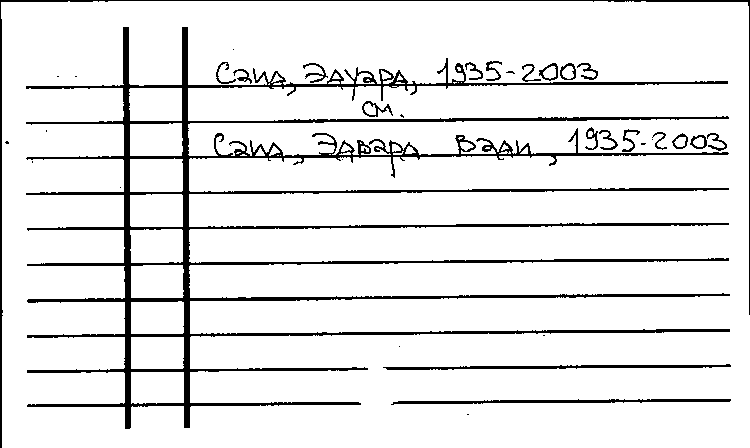 Саид, Эдуард, 1935-2003
см.
Саид, Эдвард Вади, 1935-2003